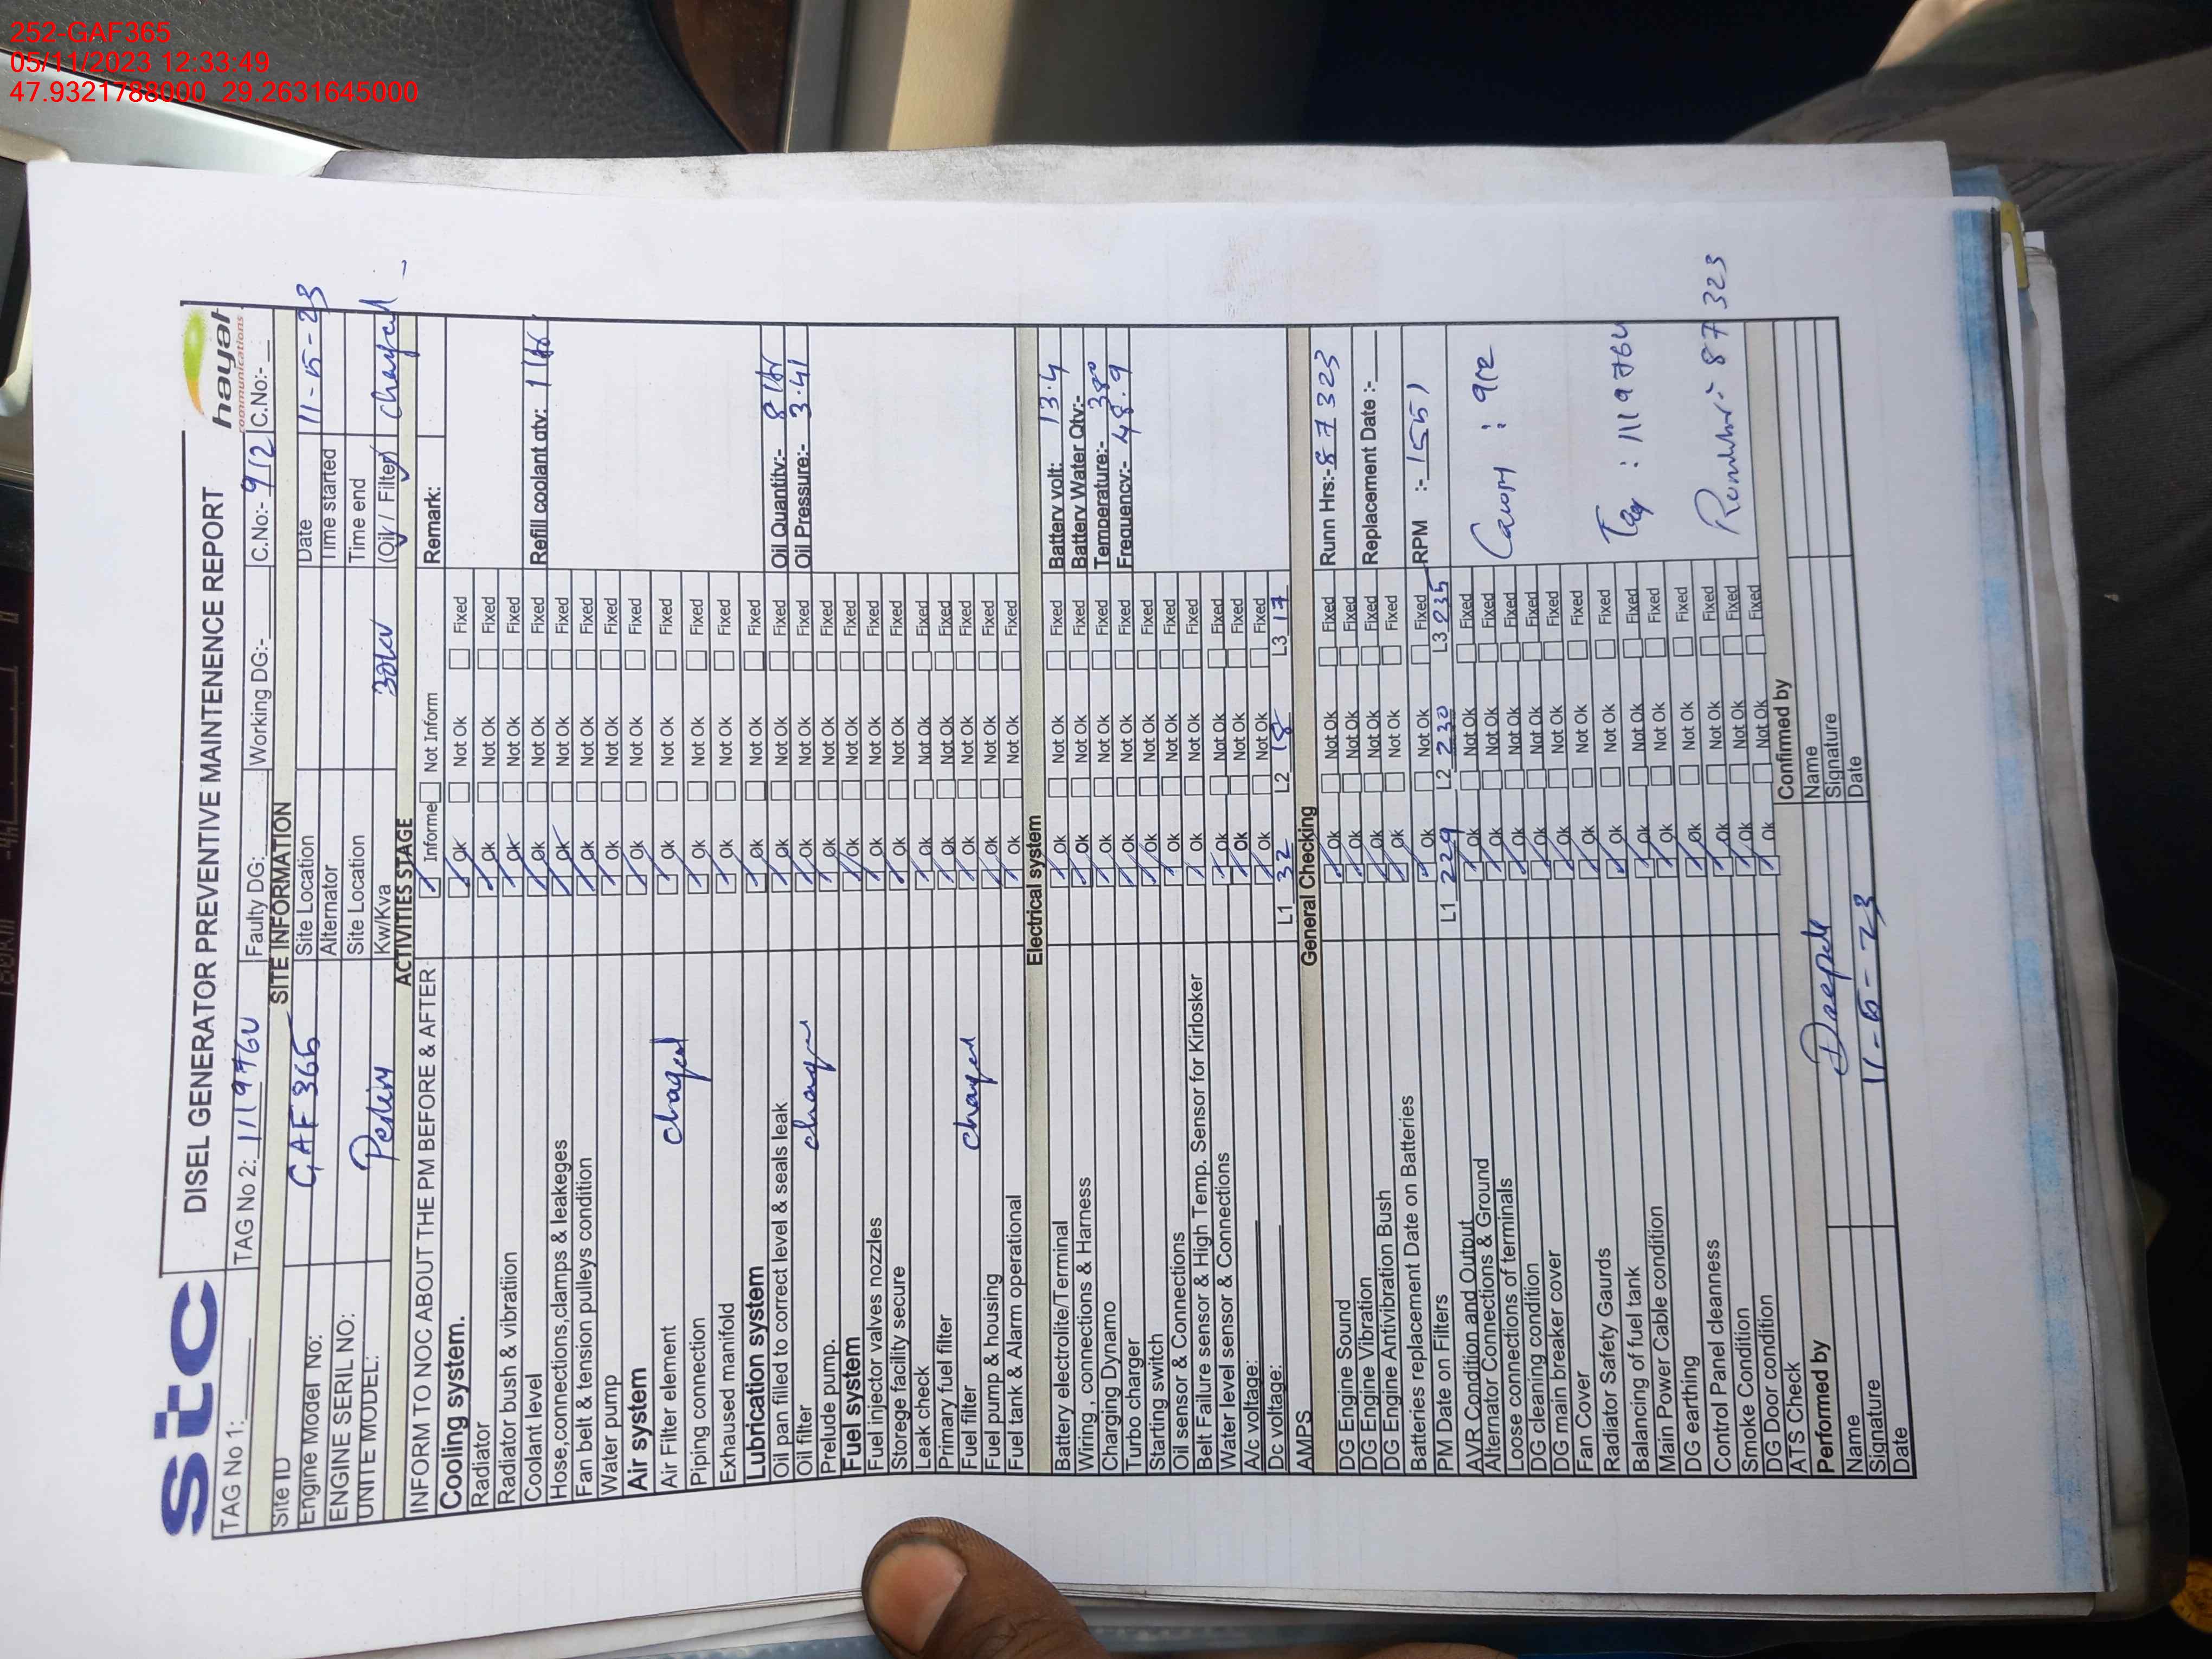 252-GAF365
05/11/2023 12:33:49
47.9321788000 29.2631645000
stc DISEL GENERATOR PREVENTIVE MAINTENENCE REPORT hayat communications
TAG No 1: TAG No 2: Faulty DG: Working DG:- C.No:- 912 C.No:-
SITE INFORMATION
Site ID GAF 365 Site Location Date 11-5-23
Engine Model No: Alternator Time started
ENGINE SERIL NO: Site Location Time end
UNITE MODEL: Kw/Kva (Oil / Filter) changed
ACTIVITIES STAGE
INFORM TO NOC ABOUT THE PM BEFORE & AFTER Informe Not Inform Remark:
Cooling system. Ok Not Ok Fixed
Radiator Ok Not Ok Fixed
Radiator bush & vibratiion Ok Not Ok Fixed
Coolant level Ok Not Ok Fixed Refill coolant qty: 1 ltr
Hose,connections,clamps & leakeges Ok Not Ok Fixed
Fan belt & tension pulleys condition Ok Not Ok Fixed
Water pump Ok Not Ok Fixed
Air system Ok Not Ok Fixed
Air Filter element chaged Ok Not Ok Fixed
Piping connection Ok Not Ok Fixed
Exhaused manifold Ok Not Ok Fixed
Lubrication system Ok Not Ok Fixed
Oil pan filled to correct level & seals leak Ok Not Ok Fixed Oil Quantity:- 8 ltr
Oil filter Ok Not Ok Fixed Oil Pressure:- 3.41
Prelude pump. Ok Not Ok Fixed
Fuel system Ok Not Ok Fixed
Fuel injector valves nozzles Ok Not Ok Fixed
Storege facility secure Ok Not Ok Fixed
Leak check Ok Not Ok Fixed
Primary fuel filter Ok Not Ok Fixed
Fuel filter changed Ok Not Ok Fixed
Fuel pump & housing Ok Not Ok Fixed
Fuel tank & Alarm operational Ok Not Ok Fixed
Electrical system
Battery electrolite/Terminal Ok Not Ok Fixed Battery volt: 13.4
Wiring , connections & Harness Ok Not Ok Fixed Battery Water Qty:-
Charging Dynamo Ok Not Ok Fixed Temperature:-
Turbo charger Ok Not Ok Fixed Frequency:- 48.9
Starting switch Ok Not Ok Fixed
Oil sensor & Connections Ok Not Ok Fixed
Belt Failure sensor & High Temp. Sensor for Kirlosker Ok Not Ok Fixed
Water level sensor & Connections Ok Not Ok Fixed
A/c voltage: Ok Not Ok Fixed
Dc voltage: Ok Not Ok Fixed
AMPS L1 32 L2 18 L3 17
General Checking
DG Engine Sound Ok Not Ok Fixed Runn Hrs:- 87323
DG Engine Vibration Ok Not Ok Fixed
DG Engine Antivibration Bush Ok Not Ok Fixed Replacement Date :-
Batteries replacement Date on Batteries Ok Not Ok Fixed
PM Date on Filters Ok Not Ok Fixed RPM :- 1551
AVR Condition and Output L1 229 L2 230 L3 235
Alternator Connections & Ground Ok Not Ok Fixed
Loose connections of terminals Ok Not Ok Fixed
DG cleaning condition Ok Not Ok Fixed
DG main breaker cover Ok Not Ok Fixed
Fan Cover Ok Not Ok Fixed
Radiator Safety Gaurds Ok Not Ok Fixed
Balancing of fuel tank Ok Not Ok Fixed
Main Power Cable condition Ok Not Ok Fixed
DG earthing Ok Not Ok Fixed
Control Panel cleanness Ok Not Ok Fixed
Smoke Condition Ok Not Ok Fixed
DG Door condition Ok Not Ok Fixed
ATS Check Ok Not Ok Fixed
: 912
Tag :
87323
Performed by Confirmed by
Name Name
Signature Signature
Date 11-5-23 Date